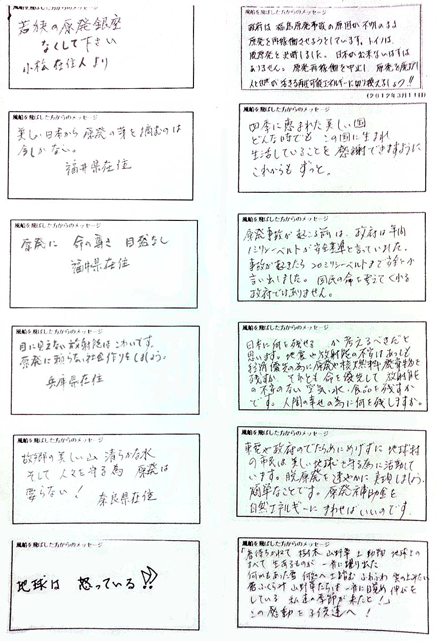 風船を飛ばした方からのメッセージ
若狭の原発銀座
なくして下さい
小松在住人より
風船を飛ばした方からのメッセージ
美しい日本から原発の芽を摘むのは
今しかない。
福井県在住
風船を飛ばした方からのメッセージ
原発に 命の尊さ 目然なし
福井県在住
風船を飛ばした方からのメッセージ
目に見えない放射能はこわいです。
原発に頼らない社会作りをしましょう。
兵庫県在住
風船を飛ばした方からのメッセージ
故郷の美しい山 清らかな水
そして 人々を守る為 原発は
要らない!
奈良県在住
風船を飛ばした方からのメッセージ
地球は 怒っている!!
風船を飛ばした方からのメッセージ
政府は福島原発事故の原因が不明のまま
原発を再稼働させようとしています。ドイツは
脱原発を決断しました。日本が出来ないはずは
ありません。原発再稼働を中止し、原発を廃炉
(2012年3月11日)
風船を飛ばした方からのメッセージ
四季に恵まれた美しい国
どんな時でも この国に生まれ
生活していることを 感謝できますように
これからも ずっと。
風船を飛ばした方からのメッセージ
原発事故が起こる前は、政府は年間
1ミリシーベルトが安全基準と言っていました。
事故が起きたら20ミリシーベルトまで安全と
言い出しました。国民の命を考えてくれる
政府ではありません。
風船を飛ばした方からのメッセージ
日本に何を残せるか考えるべきだと
思います。地震や放射能の不安はあっても
経済優先の為に原発や核燃料廃棄物を
残すか、それとも命を優先して放射能
の不安のない空気、水、食品を残すか
です。人間の幸せの為に何を残しますか。
風船を飛ばした方からのメッセージ
東電や政府のでたらめにめげずに地球村
の市民は美しい地球を守る為に活動して
います。脱原発を速やかに実現しましょう。
簡単なことです。原発補助金を
自然エネルギーにまわせばいいのです。
風船を飛ばした方からのメッセージ
すべて生きるものが一斉に踊り出た
この感動を子供達へ!